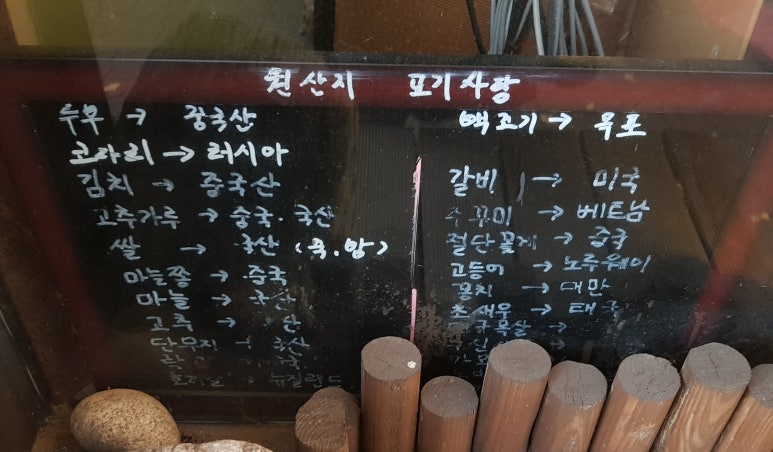 원산지 표기사항
두부 → 중국산
코다리 → 러시아
김치 → 중국산
고추가루 → 중국·국산
쌀 → 국산 (국.암)
마늘쫑 → 중국
마늘 → 국산
고추 → 산
단무지 → 국산
뉴질랜드
백조기 → 목포
갈비 → 미국
쭈꾸미 → 베트남
절단꽃게 → 중국
고등어 → 노르웨이
꽁치 → 대만
새우 → 태국
목살 →